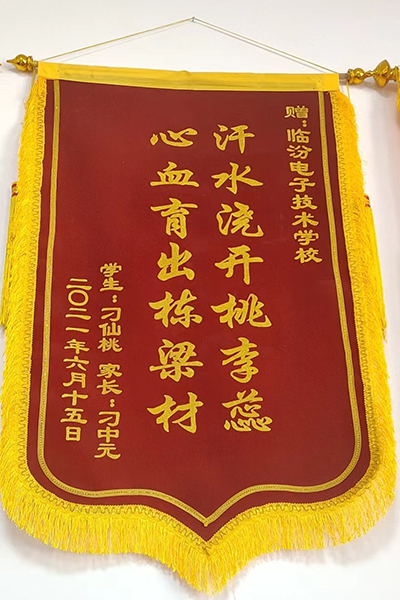 赠：临汾电子技术学校
汗水浇开桃李蕊
心血育出栋梁材
学生：刁仙桃 家长：刁中元
二〇二一年六月十五日